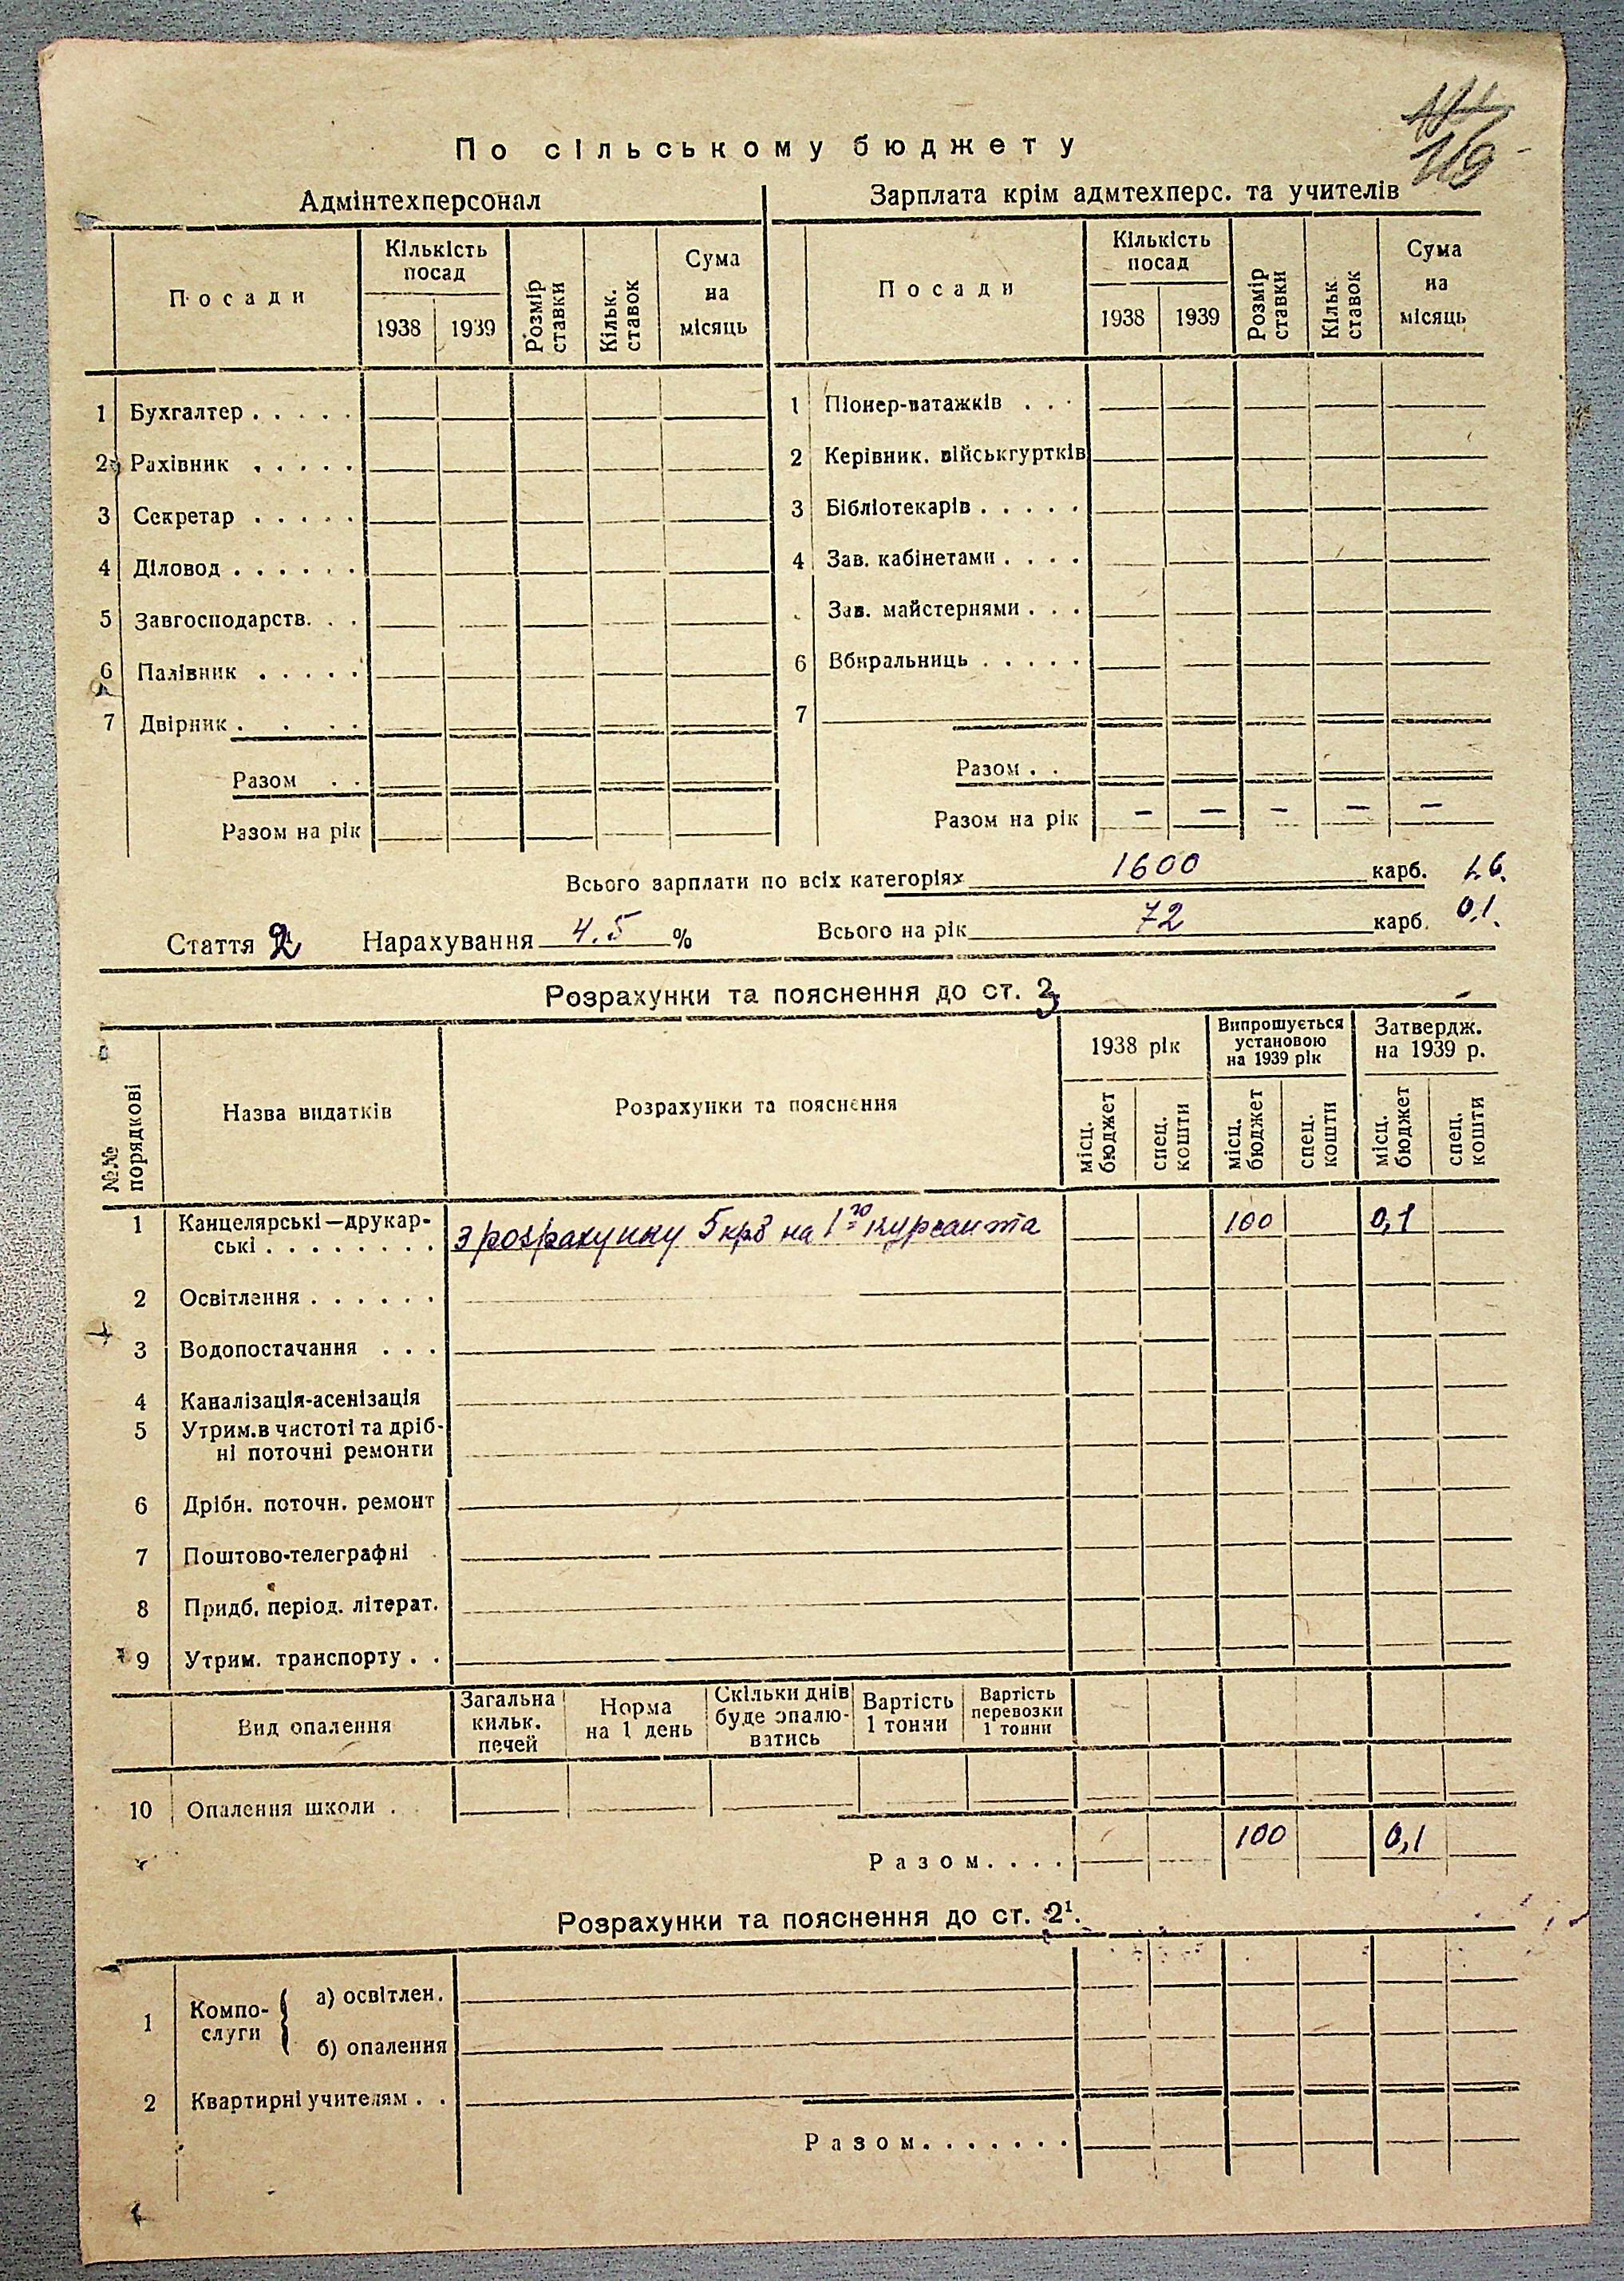 119
По сільському бюджету
Адмінтехперсонал
Зарплата крім адмтехперс. та учителів
Посади
Кількість посад
1938
1939
Розмір ставки
Кільк. ставок
Сума на місяць
Посади
Кількість посад
1938
1939
Розмір ставки
Кільк ставок
Сума на місяць
1 Бухгалтер . . . . .
2 Рахівник . . . . .
3 Секретар . . . . .
4 Діловод . . . . . .
5 Завгосподарств. . .
6 Палівник . . . . .
7 Двірник . . . .
Разом . .
Разом на рік
1 Піонер-ватажків . . .
2 Керівник. військгуртків
3 Бібліотекарів . . . . .
4 Зав. кабінетами . . . .
Зав. майстернями . . .
6 Вбиральниць . . . . .
7
Разом . .
Разом на рік — — — — —
Всього зарплати по всіх категоріях 1600 карб. 1.6.
Стаття 2 Нарахування 4.5 % Всього на рік 72 карб. 0,1.
Розрахунки та пояснення до ст. 3
№№ порядкові
Назва видатків
Розрахунки та пояснення
1938 рік
Випрошується установою на 1939 рік
Затвердж. на 1939 р.
місц. бюджет
спец. кошти
місц. бюджет
спец. кошти
місц. бюджет
спец. кошти
1 Канцелярські—друкар-
ські . . . . . . . . з розрахунку 5 крб на 1го курсанта 100 0,1
2 Освітлення . . . . . .
3 Водопостачання . . .
4 Каналізація-асенізація
5 Утрим. в чистоті та дріб-
ні поточні ремонти
6 Дрібн. поточн. ремонт
7 Поштово-телеграфні
8 Придб. період. літерат.
9 Утрим. транспорту . .
Вид опалення
Загальна кильк. печей
Норма на 1 день
Скільки днів буде опалю-
ватись
Вартість 1 тонни
Вартість перевозки 1 тонни
10 Опалення школи .
Разом. . . . 100 0,1
Розрахунки та пояснення до ст. 2¹.
1 Компо-
слуги
а) освітлен.
б) опалення
2 Квартирні учителям . .
Разом. . . . . . .